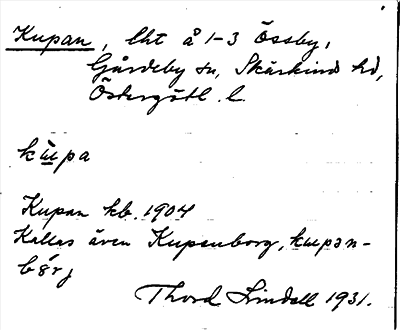 Kupan, lht å 1-3 Össby,
Gårdeby sn, Skärkind hd,
Östergötl. l.
kɯpa
Kupan kb. 1904
Kallas även Kupenborg, kɯpən-
bȯrj
Thord Lindell 1931.